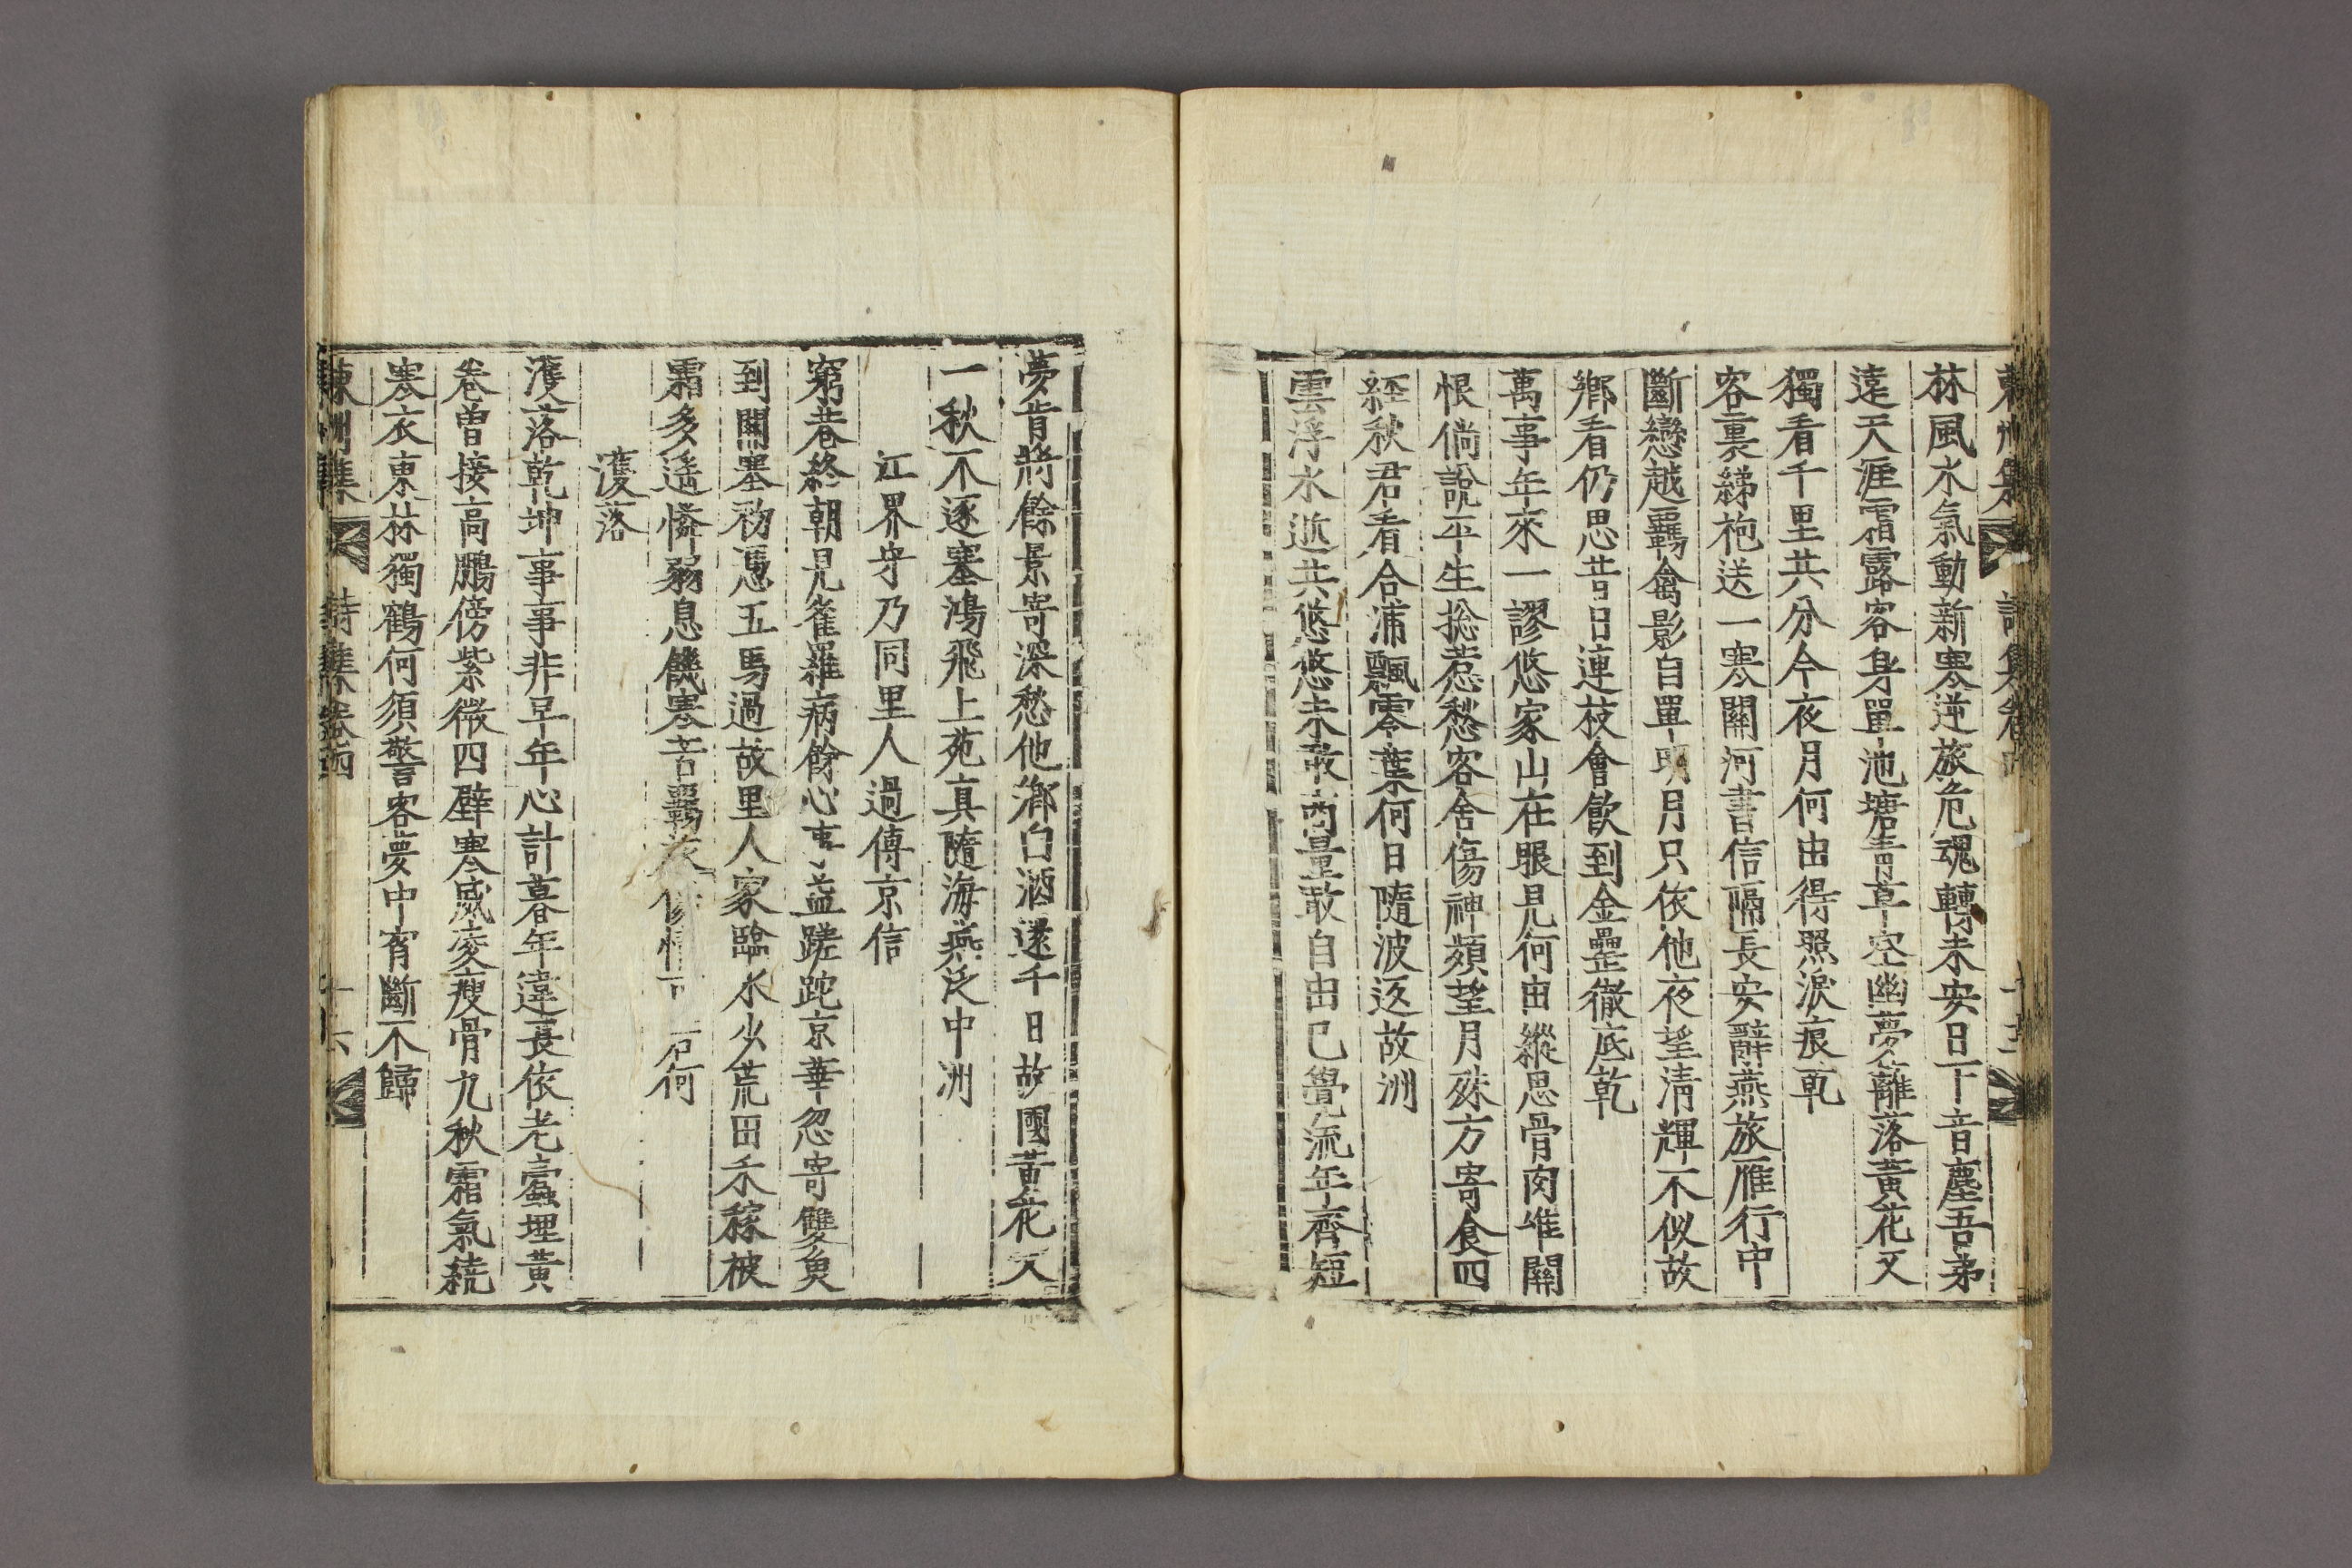 林風水氣動新寒逆旅危魂轉未安日下音塵吾弟
遠天涯霜露客身單池塘靑草空幽夢籬落黃花又
獨看千里共分今夜月何由得照淚痕乾
客裏綈袍送一寒關河書信隔長安辭燕旅雁行中
斷戀越羈禽影自單明月只依他夜望淸輝不似故
鄕看仍思昔日連枝會飮到金罍徹底乾
萬事年來一謬悠家山在眼見何由縱思骨肉唯關
恨倘說平生捴惹愁客舍傷神頻望月殊方寄食四
経秋君看合浦飄零葉何日隨波返故洲
雲浮水逝共悠悠未敢量敢自由已覺流年齊短
夢肯將餘景寄深愁他鄕白酒遥千日故國黃花又
一秋不逐塞鴻飛上苑真隨海燕泛中洲
江界守乃同里人過傳京信
窮巷終朝見雀羅病餘心事益蹉跎京華忽寄雙魚
到關塞初憑五馬過故里人家臨水少荒田禾稼被
霜多遥憐弱息饑寒苦羈旅何
濩落
濩落乾坤事事非早年心計暮年違長依老蠹埋黃
卷曾接高鵬傍紫微四壁寒威凌瘦骨九秋霜氣繞
寒衣東林獨鶴何須警客夢中宵斷不歸
東洲集 詩集卷四 十六